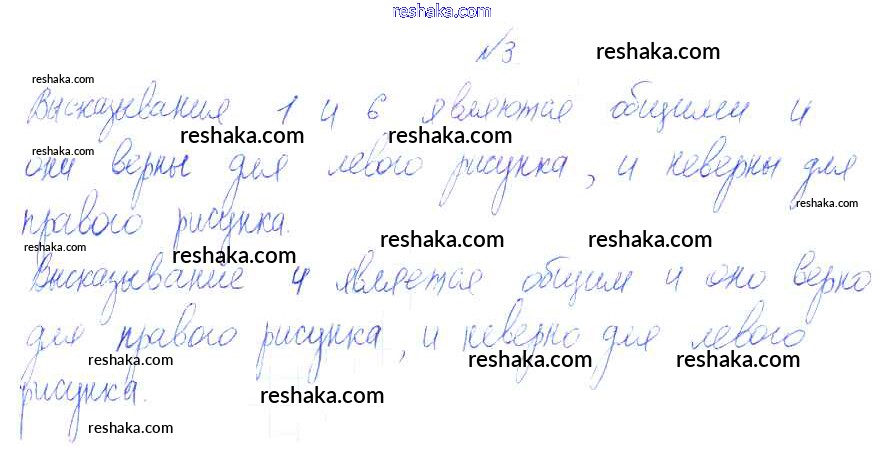 reshaka.com
№3 reshaka.com
reshaka.com
Высказывания 1 и 6 являются общими и
reshaka.com reshaka.com
reshaka.com
они верны для левого рисунка, и неверны для
reshaka.com
правого рисунка.
reshaka.com reshaka.com reshaka.com reshaka.com
Высказывание 4 является общим и оно верно
для правого рисунка, и неверно для левого
reshaka.com reshaka.com reshaka.com
рисунка.
reshaka.com
reshaka.com